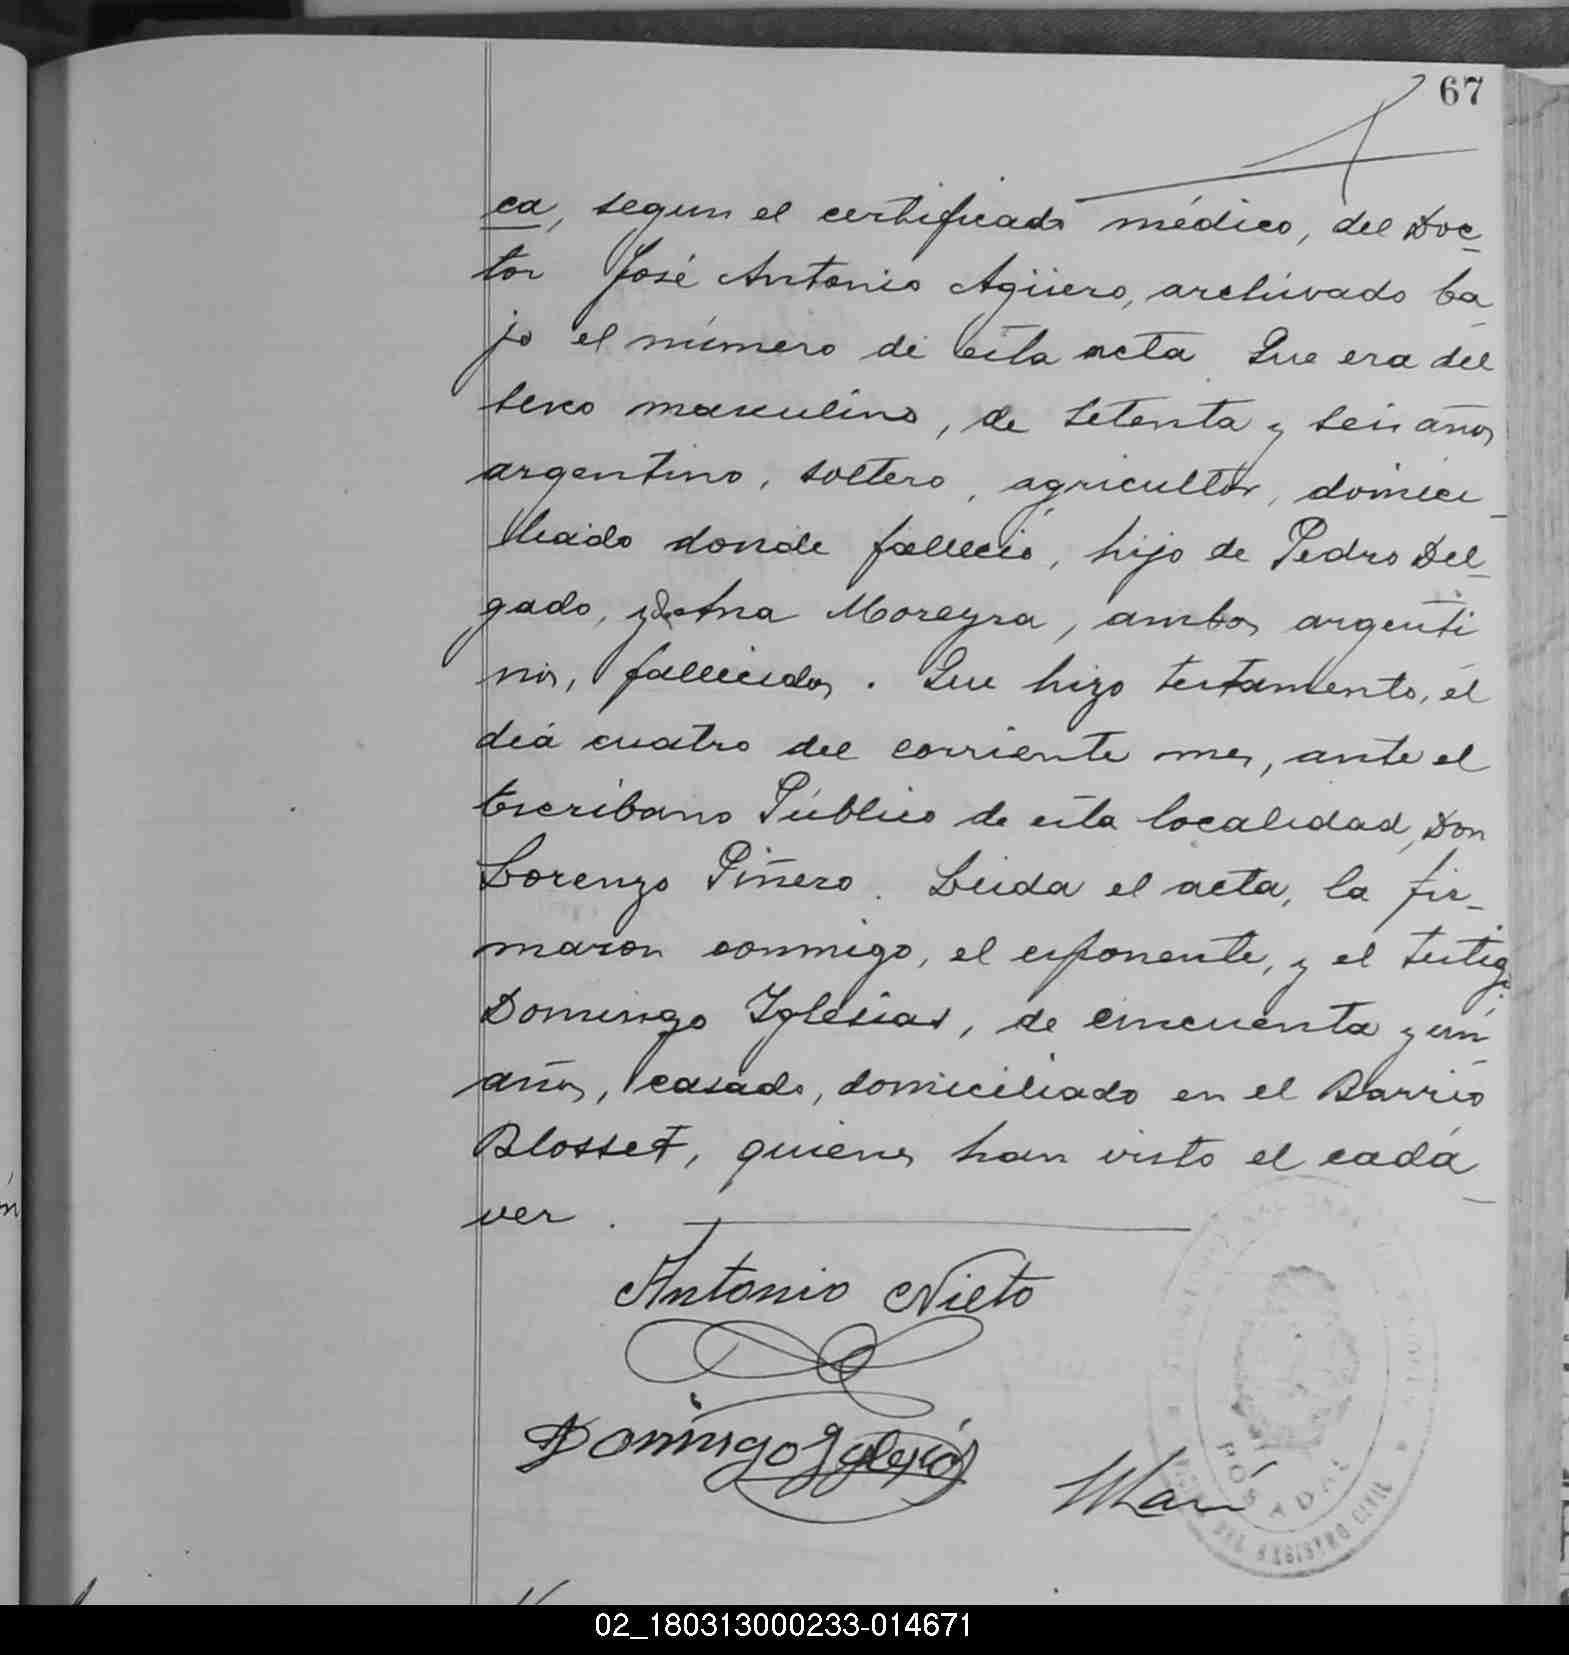 67
ca, segun el certificado médico, del Doc-
tor José Antonio Agüero, archivado ba-
jo el número de esta acta. Que era del
sexo masculino, de setenta y seis años
argentino, soltero, agricultor, domici-
liado donde falleció, hijo de Pedro Del-
gado, y de Ana Moreyra, ambos argenti-
nos, fallecidos. Que hizo testamento, el
día cuatro del corriente mes, ante el
Escribano Público de esta localidad, Don
Lorenzo Piñero. Leida el acta, la fir-
maron conmigo, el exponente, y el testigo:
Domingo Iglesias, de cincuenta y un
años, casado, domiciliado en el Barrio
Blosset, quienes han visto el cadá-
ver.
Antonio Nieto
Domingo Iglesias
POSADAS
DEL REGISTRO CIVIL
02_180313000233-014671